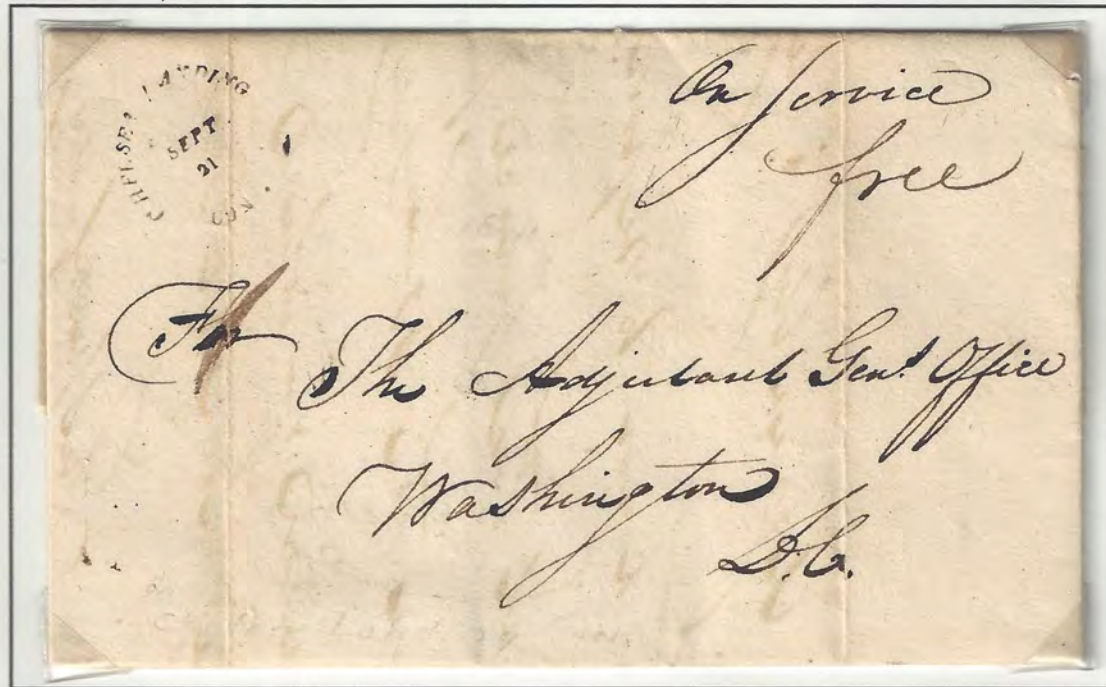 CHELSEA LANDING
SEPT
21
CON
On Service
free
For
The Adjutant Genl. Office
Washington
D.C.